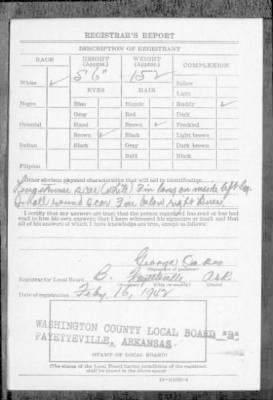 REGISTRAR'S REPORT
DESCRIPTION OF REGISTRANT
RACE HEIGHT (Approx.) WEIGHT (Approx.) COMPLEXION
White ✓ 5'6" 152 Sallow
EYES HAIR Light
Negro Blue Blonde Ruddy ✓
Gray Red Dark
Oriental Hazel Brown ✓ Freckled
Brown ✓ Black Light brown
Indian Black Gray Dark brown
Bald Black
Filipino
Other obvious physical characteristics that will aid in identification
scar (white) 3 in long on inside left leg
Small round scar 3 in below right knee.
I certify that my answers are true; that the person registered has read or has had
read to him his own answers; that I have witnessed his signature or mark and that
all of his answers of which I have knowledge are true, except as follows:
George
Registrar for Local Board B. Fayetteville Ark
Date of registration Feby. 16, 1942
WASHINGTON COUNTY LOCAL BOARD
FAYETTEVILLE, ARKANSAS.
(STAMP OF LOCAL BOARD)
(The stamp of the Local Board having jurisdiction of the registrant
shall be placed in the above space)